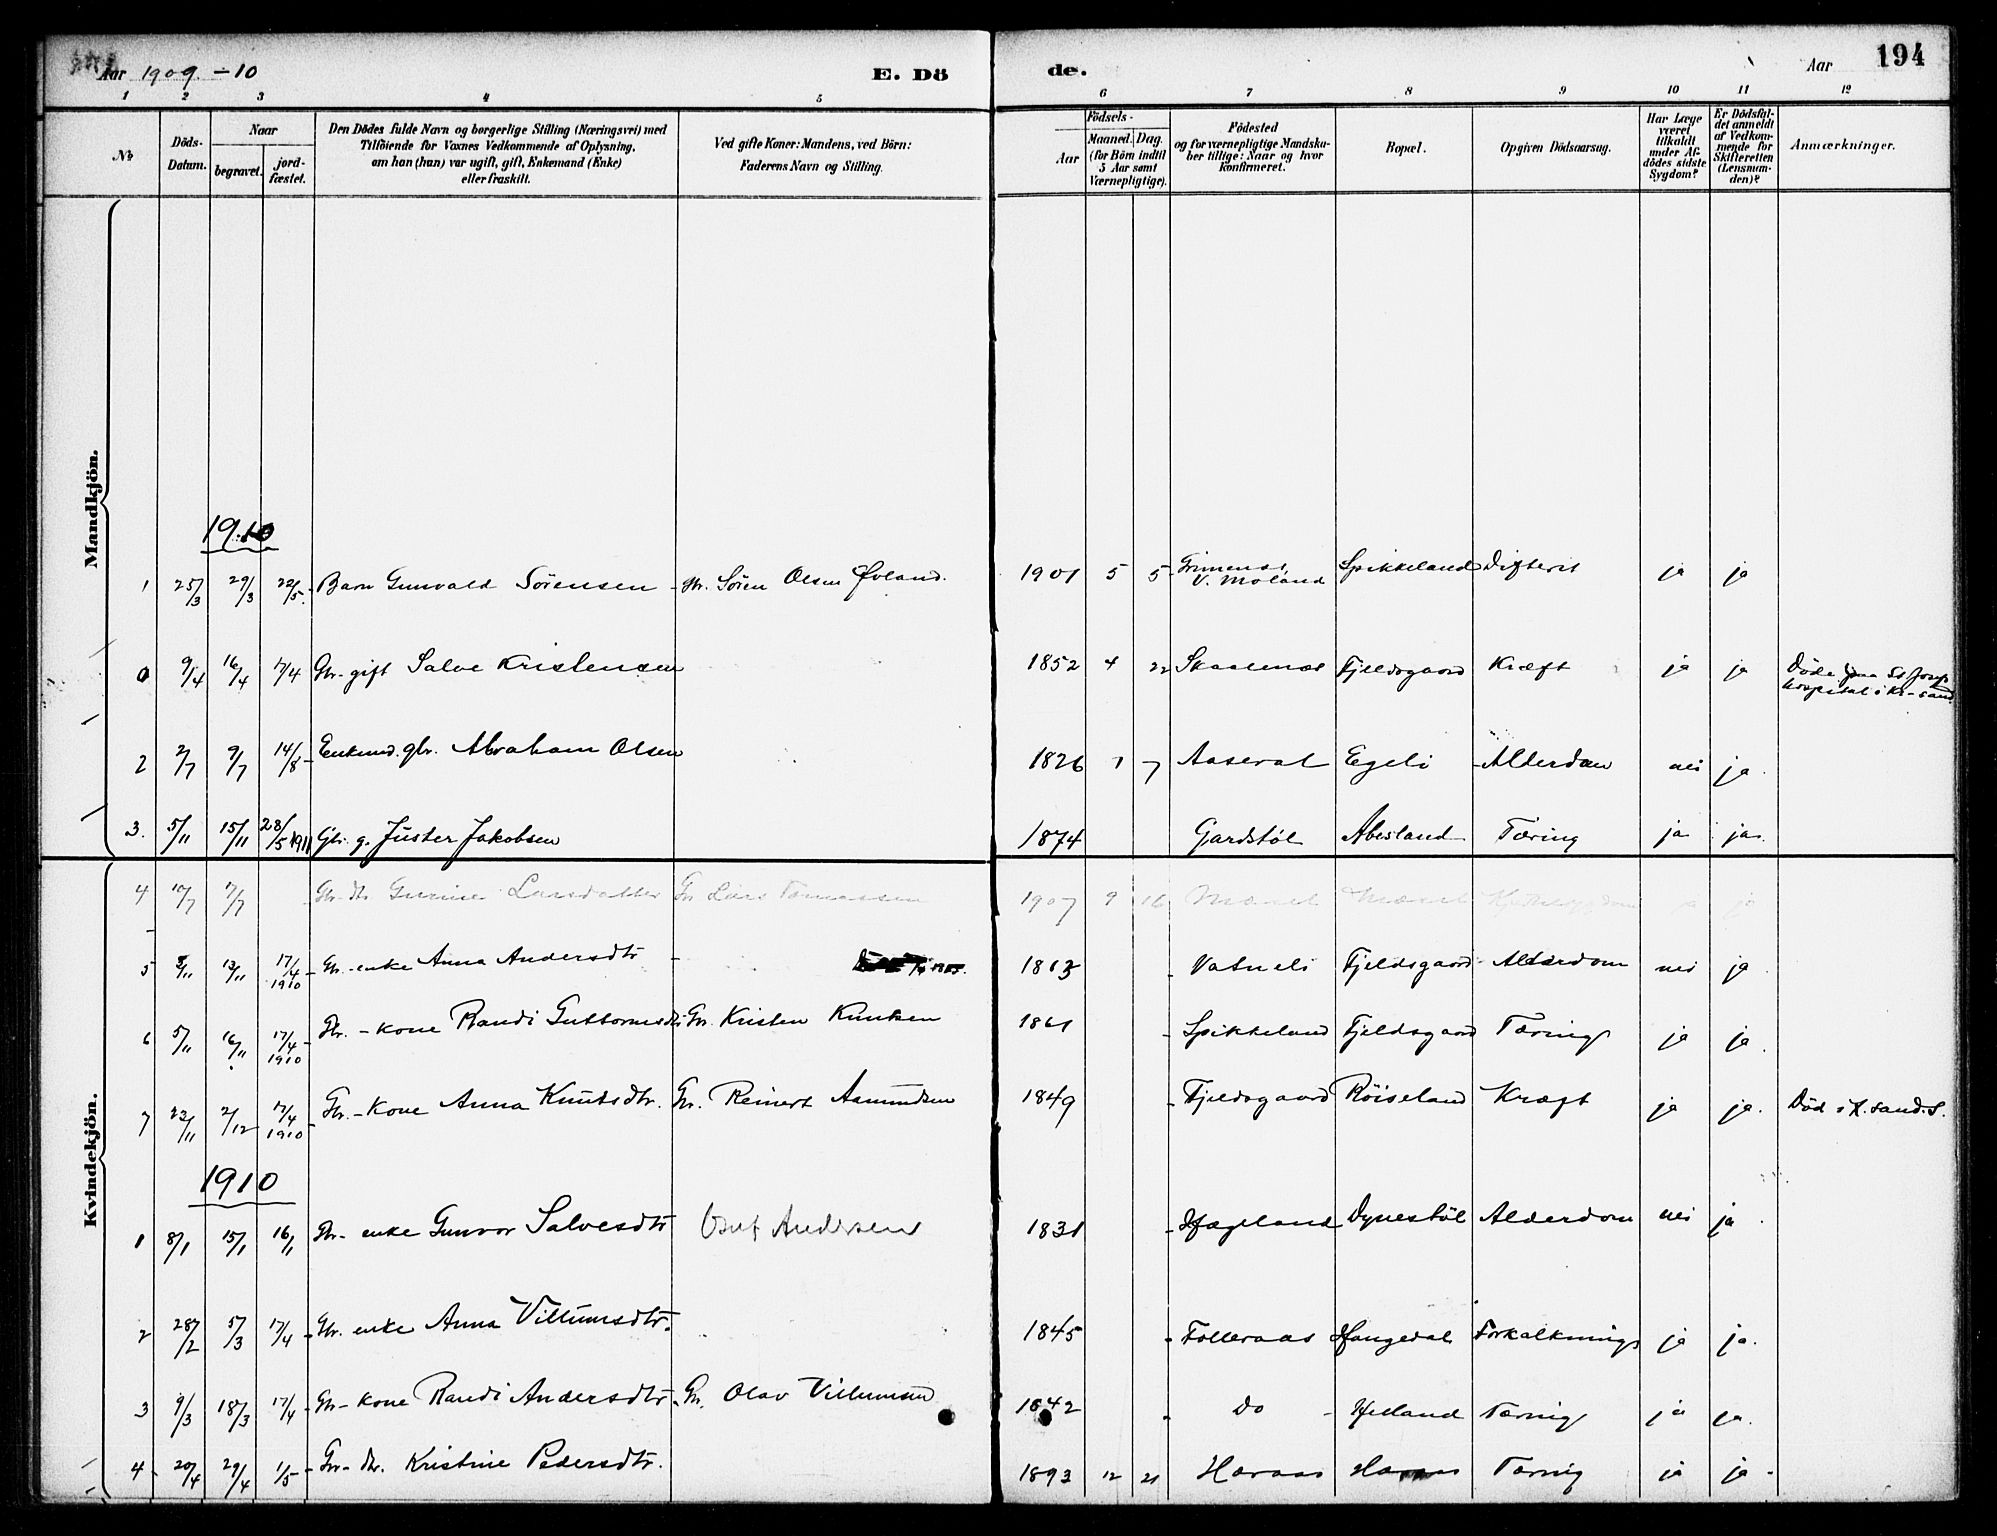 Aar 1909-10 E. Dö de. Aar 194
1 2 3 4 5 6 7 8 9 10 11 12
No
Döds-Datum.
Naar
begravet.
jord-fæstet.
Den Dödes fulde Navn og borgerlige Stilling (Næringsvei) med
Tilföiende for Voxnes Vedkommende af Oplysning,
om han (hun) var ugift, gift, Enkemand (Enke)
eller fraskilt.
Ved gifte Koner: Mandens, ved Börn:
Faderens Navn og Stilling.
Födsels-
Aar
Maaned. Dag.
(for Börn indtil
5 Aar samt
Værnepligtige).
Födested
og for værnepligtige Mandska-
ber tillige: Naar og hvor
konfirmeret.
Bopæl.
Opgiven Dödsaarsag.
Har Læge
været
tilkaldt
under Af-
dödes sidste
Sygdom?
Er Dödsfal-
det anmeldt
af Vedkom-
mende for
Skifteretten
(Lensman-
den)?
Anmærkninger.
Mandkjön.
1910
1 25/3 29/3 22/5 Barn Gunvald Sörensen Gbr. Sören Olsen Øvland. 1901 5 5 Grimenes, V. Moland Spikkeland Difterit ja ja
9/4 16/4 17/4 Gbr. gift Salve Kristensen 1852 4 22 Fjeldsgaard Kræft ja ja Døde paa St Josp. hospital i Kr-sand.
2 2/7 9/7 14/8 Enkmd. gbr. Abraham Olsen 1826 1 7 Aaseral Egeli Alderdom nei ja
3. 5/11 15/11 28/5 1911 Gbr. g. Juster Jakobsen 1874 Gardstöl Abesland Tæring ja ja
Kvindekjön.
4 10/7 17/7 Gbr. dtr. Gurine Larsdatter Gbr Lars Tomassen 1907 9 16 ja
5 13/11 17/4 1910 Gbr. enke Anna Andersdtr 1813 Vatneli Fjeldsgaard Alderdom nei ja
6 5/11 16/11 17/4 1910 Gbr. - kone Randi Guttormsdtr Gbr. Kristen Knutsen 1861 Spikkeland Fjeldsgaard Tæring ja ja.
7 23/11 2/12 17/4 1910 Gbr. - kone Anna Knutsdtr. Gbr. Reinert Aamundsen 1849 Fjeldsgaard Röiseland Kræft ja ja. Död i K.sand.S.
1910
1 8/1 15/1 16/1 Gbr. enke Gunvor Salvesdtr Andersen 1831 Hægeland Dynestöl Alderdom nei ja
2 28/2 5/3 17/4 Gbr. enke Anna Villumsdtr. 1845 Folleraas Haugedal Forkalknings ja ja.
3 9/3 18/3 17/4 Gbr. kone Randi Andersdtr. Gbr. Olav Villumsen 1842 Do Helland Tæring ja ja.
4 20/4 29/4 1/5 Gbr. dtr. Kristine Pedersdtr. 1893 12 21 Haraas Haraas Tæring ja ja